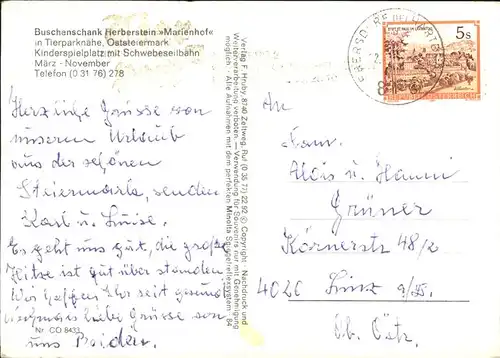 Buschanschank Herberstein »Marienhof«
in Tierparknähe, Oststeiermark
Kinderspielplatz mit Schwebeseilbahn
März - November
Telefon (0 31 76) 278
Herzliche Grüsse von
unserem Urlaub
aus der schönen
Steiermark, senden
Karl u. Luise.
Es geht uns gut, die große
Hitze ist gut überstanden
Wir hoffen Ihr seit gesund
nochmals liebe Grüsse von
uns Beiden.
Nr. CO 8433
Verlag F. Hruby, 8740 Zeltweg, Ruf (0 35 77) 22 5 92 © Copyright - Nachdruck und
Weiterverarbeitung verboten. — Verwendung für Souvenirs nur mit Genehmigung
möglich - Alle Aufnahmen mit dem perfekten Minolta Spiegelreflexsystem. 84
BEI HARTBERG
5 S
REPUBLIK ÖSTERREICH
An
Fam.
Alois u. Hanni
Grüner
Körnerstr 48/2
4020 Linz a/D.
Ob. Östr.